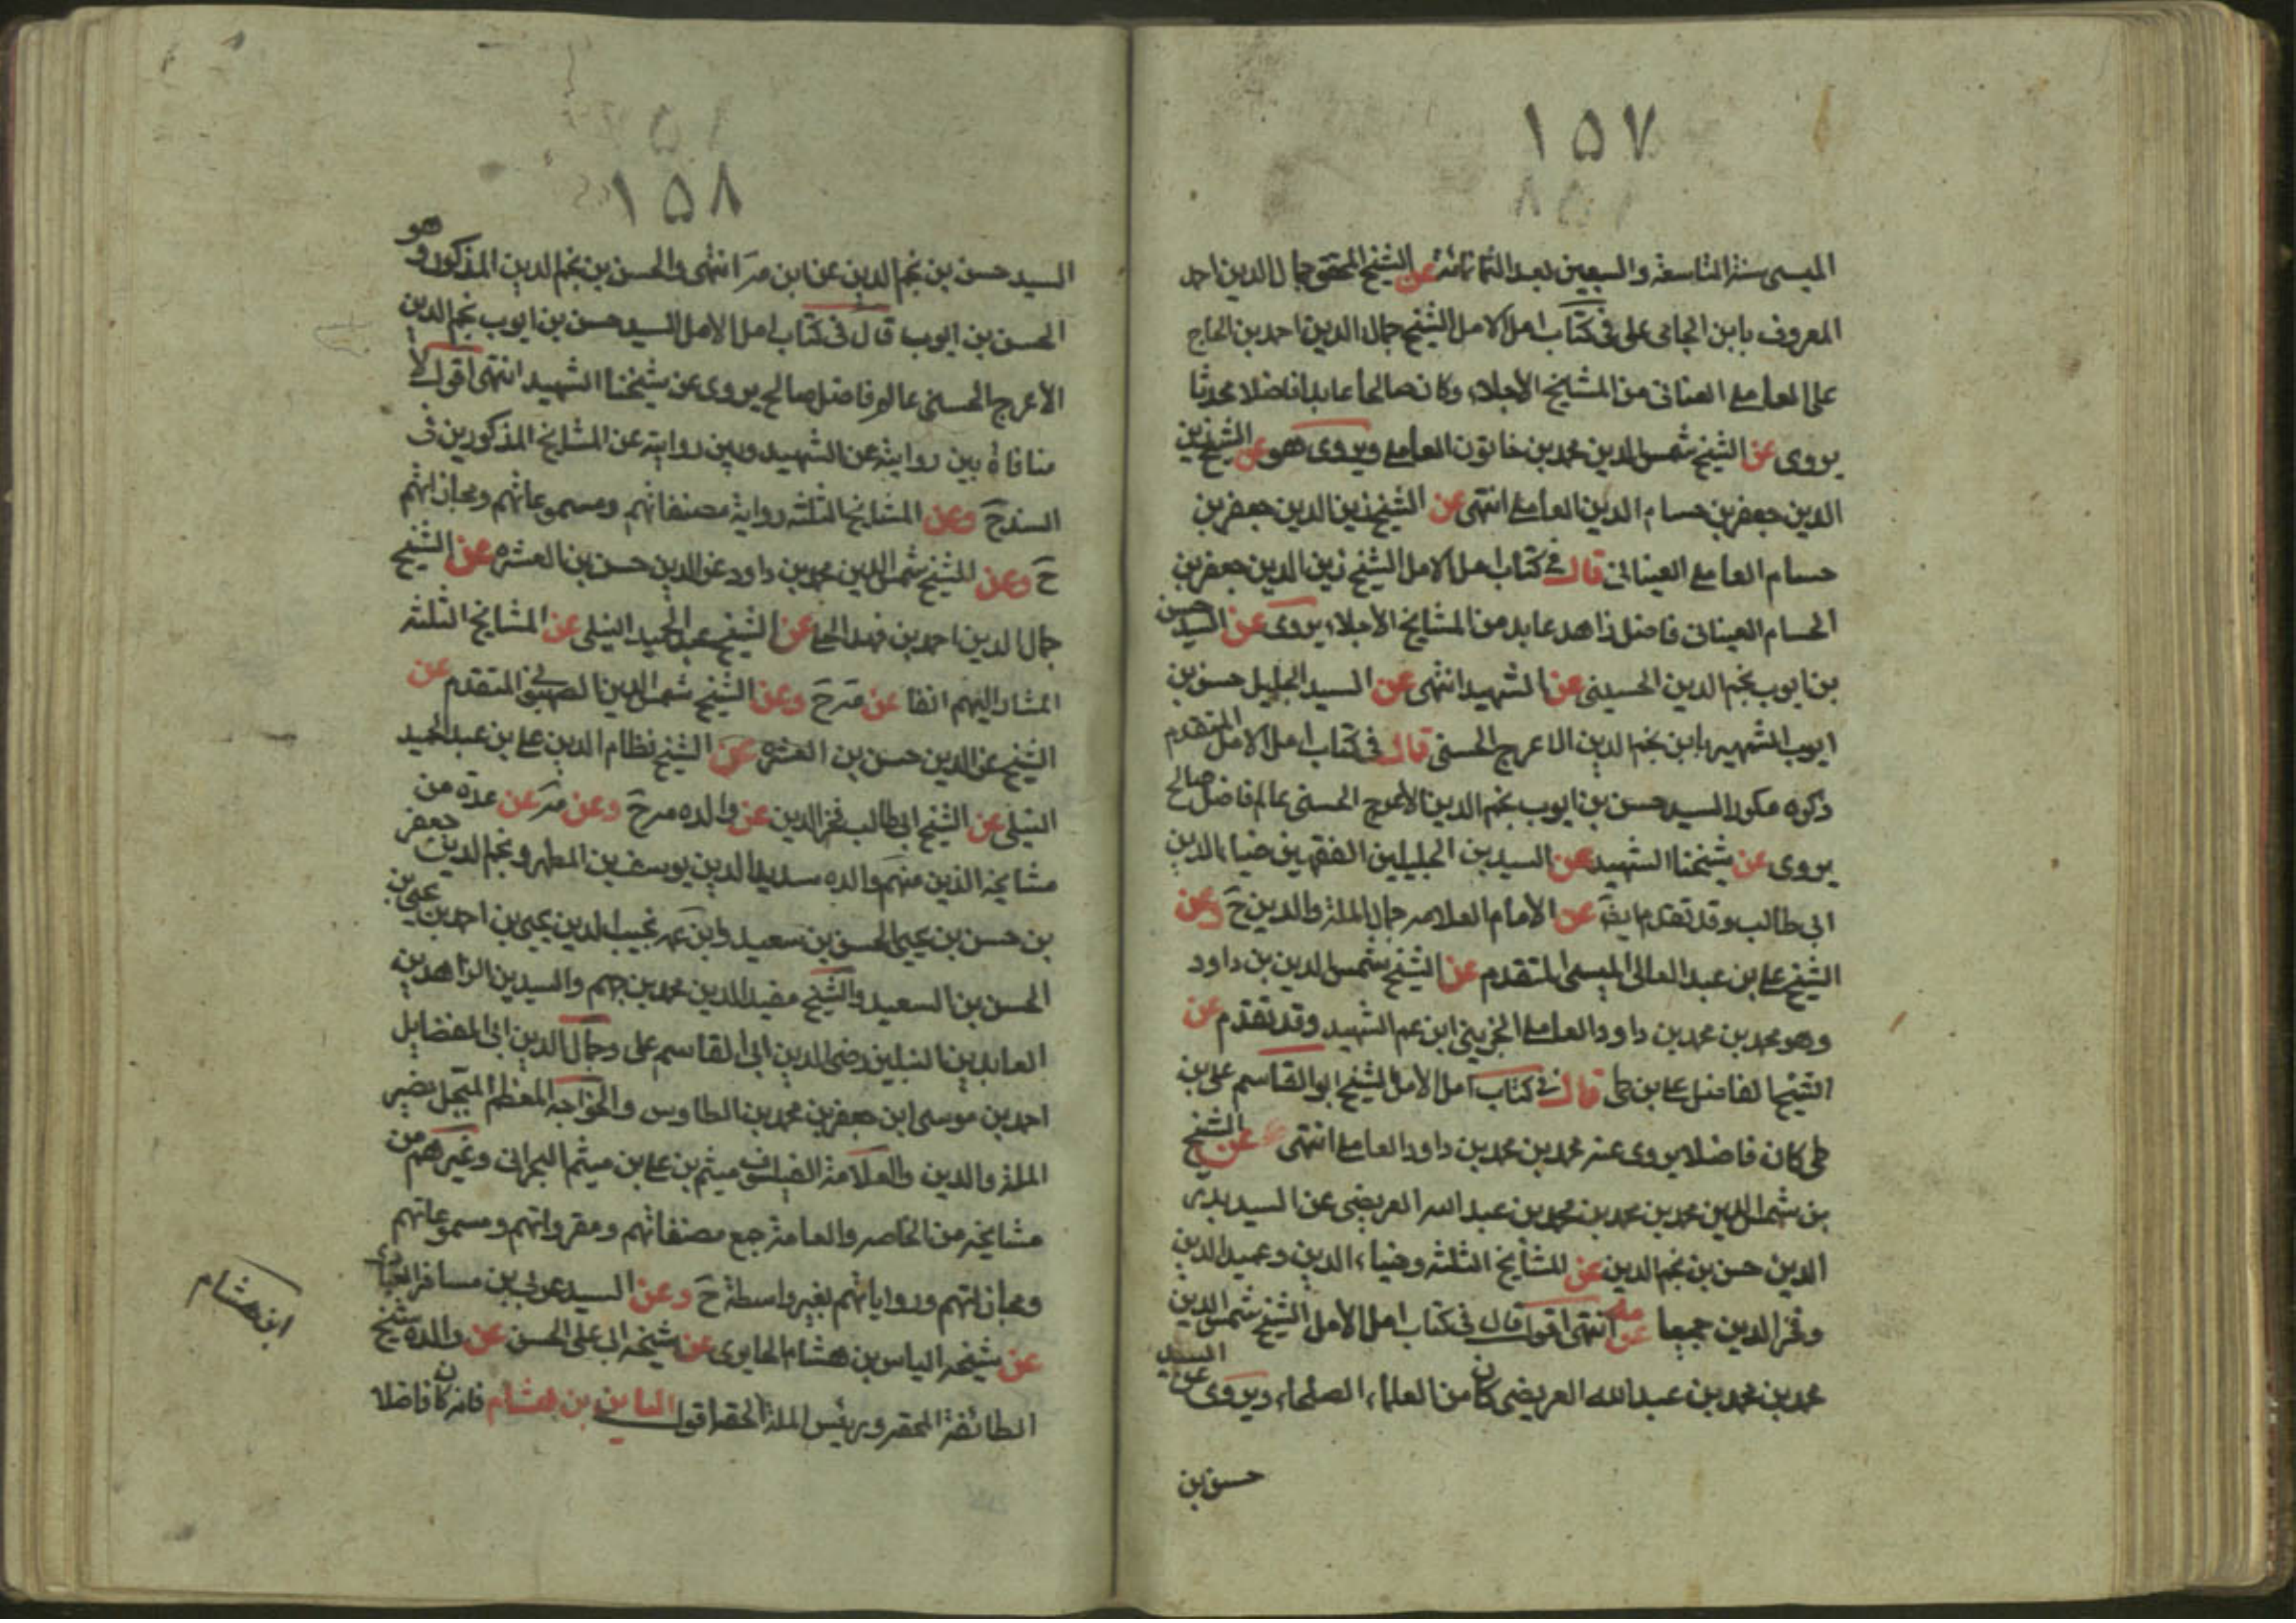 ١٥٧
الميسى سنة التاسعة والسبعين بعد الثمانمائة عن الشيخ المحقق جمال الدين احمد
المعروف بابن الحاجى على فى كتاب امل الامل الشيخ جمال الدين احمد بن الحاج
على العاملى العيناثى من المشايخ الأجلاء وكان صالحا عابدا فاضلا محدثا
يروى عن الشيخ شمس الدين محمد بن خاتون العاملى ويروى هو عن الشيخ زين
الدين جعفر بن حسام الدين العاملى انتهى عن الشيخ زين الدين جعفر بن
حسام العاملى العيناثى قال فى كتاب امل الامل الشيخ زين الدين جعفر بن
الحسام العيناثى فاضل زاهد عابد من المشايخ الأجلاء يروى عن السيد حسن
بن ايوب نجم الدين الحسينى عن الشهيد انتهى عن السيد الجليل حسن بن
ايوب الشهير بابن نجم الدين الاعرج الحسنى قال فى كتاب امل الامل المتقدم
ذكره مكررا السيد حسن بن ايوب نجم الدين الأعرج الحسنى عالم فاضل صالح
يروى عن شيخنا الشهيد عن السيدين الجليلين الفقهين ضياء الدين
ابى طالب وقد تقدم عن الأمام العلامه جمال الملة والدين حَ وعن
الشيخ على بن عبد العالى الميسى المتقدم عن الشيخ شمس الدين بن داود
وهو محمد بن محمد بن داود العاملى الجزينى ابن عم الشهيد وقد تقدم عن
الشيخ الفاضل على بن طى قال فى كتاب امل الامل الشيخ ابو القاسم على بن
طى كان فاضلا يروى عنه محمد بن محمد بن داود العاملى انتهى عن الشيخ
بن شمس الدين محمد بن محمد بن محمد بن عبد الله العريضى عن السيد بدر
الدين حسن بن نجم الدين عن المشايخ الثلثه وضياء الدين وعميد الدين
وفخر الدين جميعا عن مه انتهى اقول قال فى كتاب امل الأمل الشيخ شمس الدين
محمد بن محمد بن عبد الله العريضى كان من العلماء الصلحاء ويروى عن السيد
حسن بن
١٥٨
السيد حسن بن نجم الدين عن ابن مرَ انتهى والحسن بن نجم الدين المذكور وهو
الحسن بن ايوب قال فى كتاب امل الامل السيد حسن بن ايوب نجم الدين
الأعرج الحسنى عالم فاضل صالح يروى عن شيخنا الشهيد انتهى اقول لا
منافاة بين روايته عن الشهيد وبين روايته عن المشايخ المذكورين فى
السند حَ وعن المشايخ الثلثه رواية مصنفاتهم ومسموعاتهم ومجازاتهم
حَ وعن الشيخ شمس الدين محمد بن داود عز الدين حسن بن العشره عن الشيخ
جمال الدين احمد بن فهد الحلى عن الشيخ عبد الحميد النيلى عن المشايخ الثلثه
المشار اليهم انفا عن مرَ حَ وعن الشيخ شمس الدين الصهيونى المتقدم عن
الشيخ عز الدين حسن بن العشره عن الشيخ نظام الدين على بن عبد الحميد
النيلى عن الشيخ ابى طالب فخر الدين عن والده مرحَ وعن مرَ عن عدة من
مشايخه الذين منهم والده سديد الدين يوسف بن المطهر ونجم الدين جعفر
بن حسن بن يحيى الحسن بن سعيد وابن عمه نجيب الدين يحيى بن احمد بن يحيى بن
الحسن بن السعيد والشيخ مفيد الدين محمد بن جهم والسيدين الزاهدين
العابدين النبلين رضى الدين ابى القاسم على وجمال الدين ابى الفضايل
احمد بن موسى ابن جعفر بن محمد بن الطاوس والخواجه المعظم المبجل نصير
الملة والدين والعلامة الفيلسوف ميثم بن على بن ميثم البحرانى وغيرهم من
مشايخه من الخاصه والعامة جمع مصنفاتهم ومقرواتهم ومسموعاتهم
ومجازاتهم ورواياتهم بغير واسطة حَ وعن السيد عربى بن مسافر العبادى
عن شيخه الياس بن هشام الحايرى عن شيخه ابى على الحسن عن والده شيخ
الطائفة المحقه ورئيس الملة الحقه اقول الياس بن هشام فانه كان فاضلا
ابن هشام